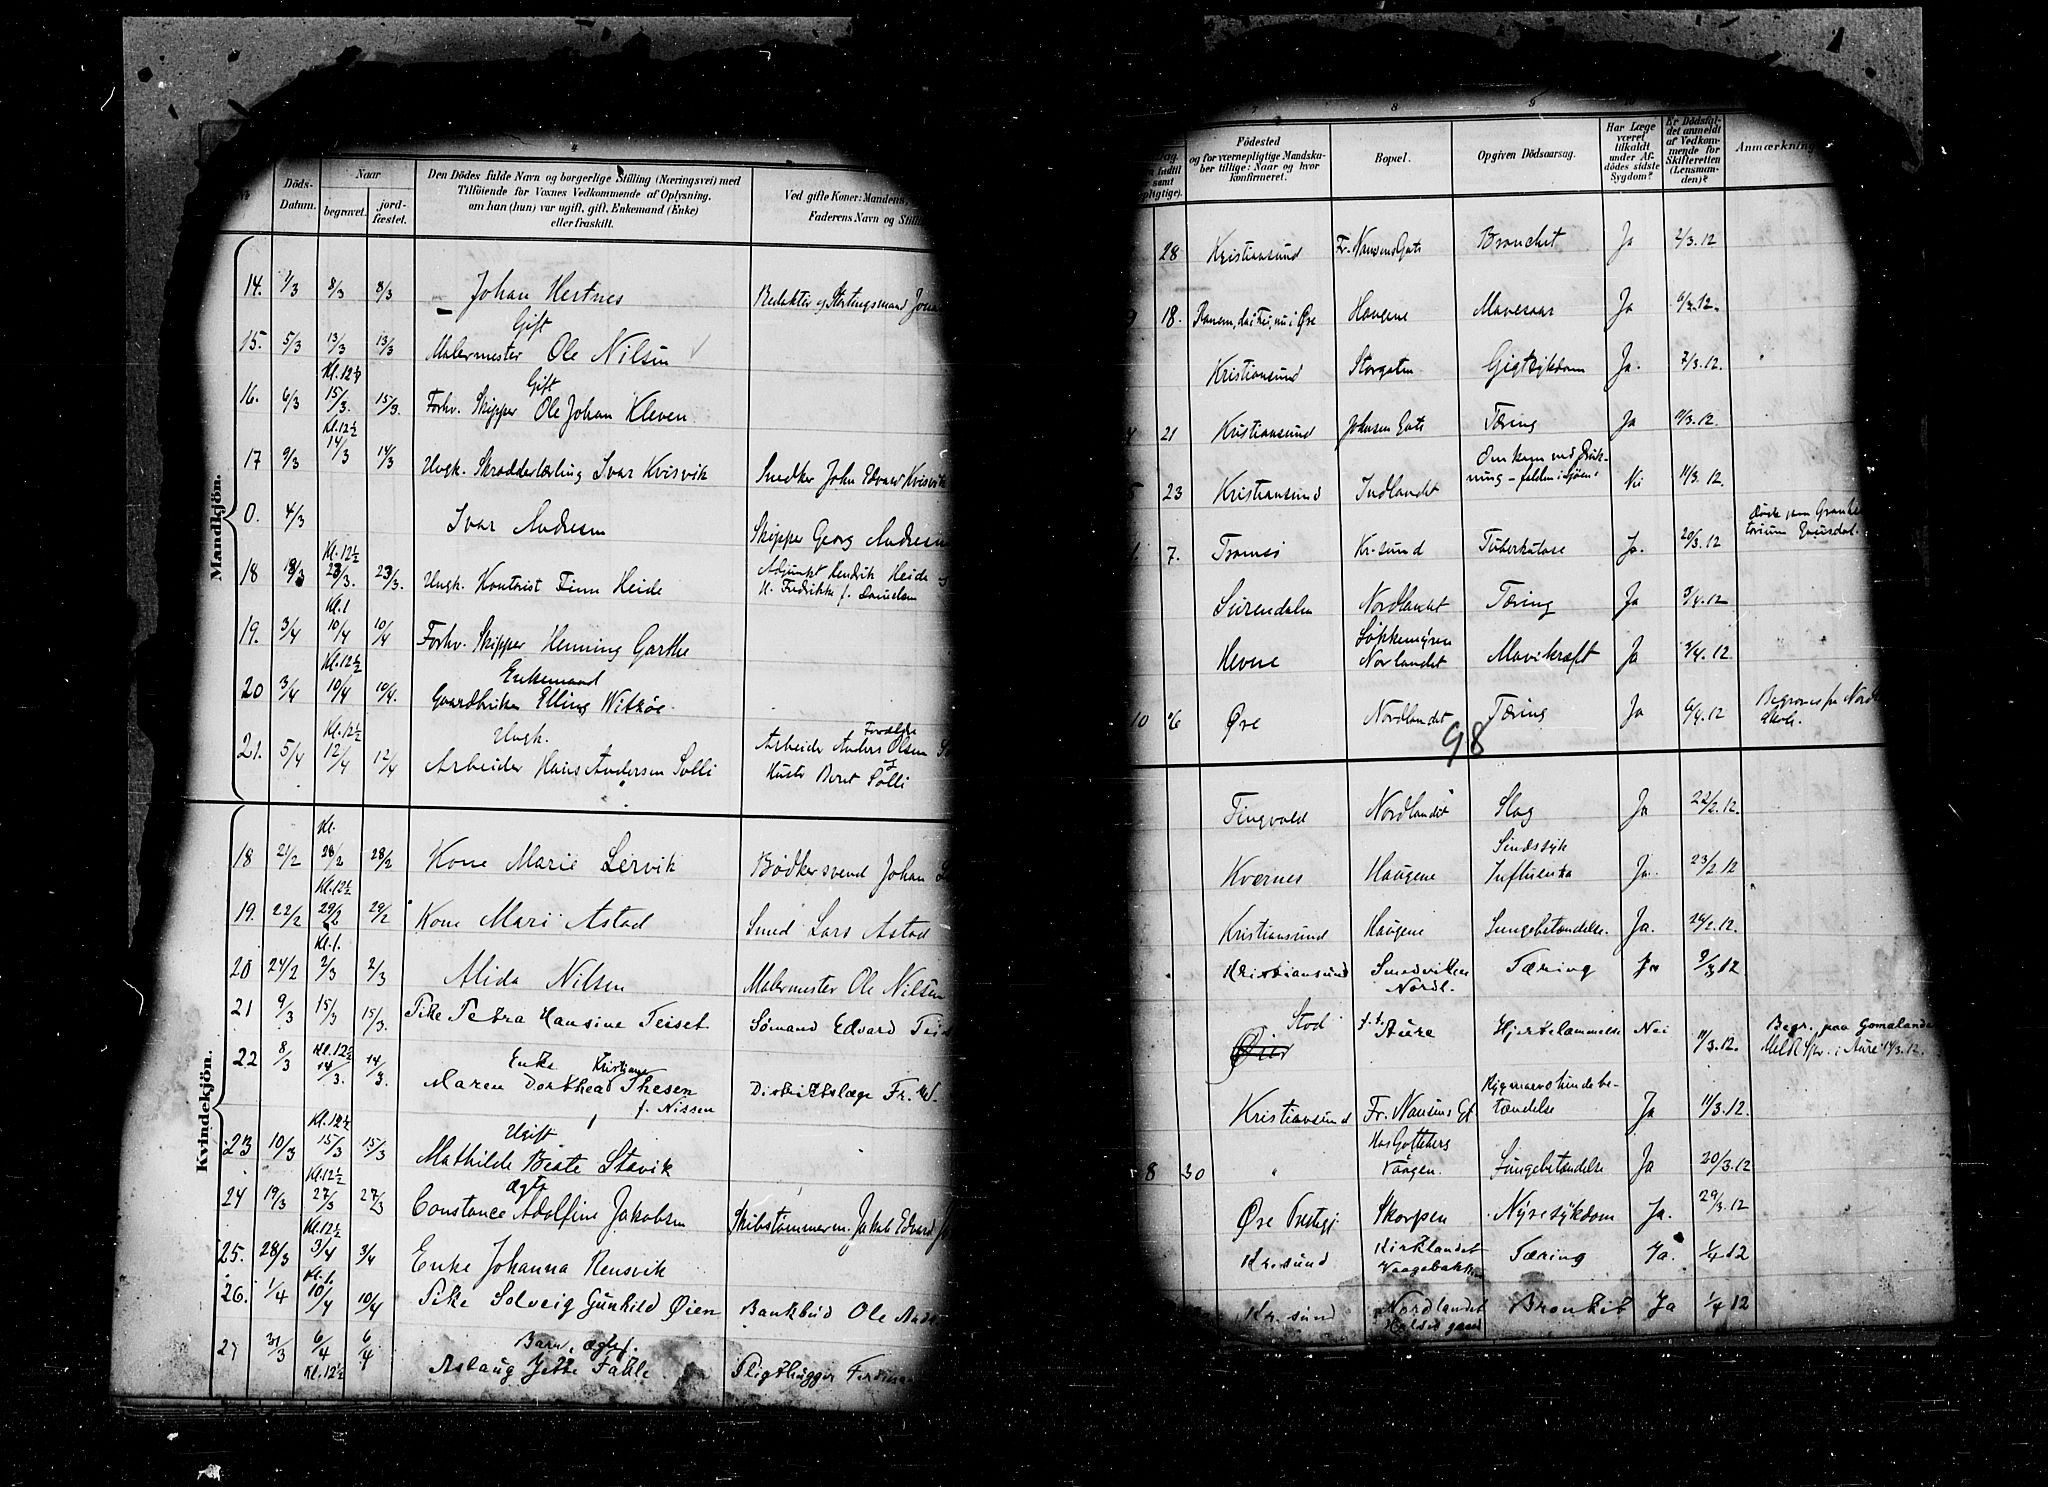 4
No
Döds-
Datum.
Naar
begravet.
jord-
fæstet.
Den Dödes fulde Navn og borgerlige Stilling (Næringsvei) med
Tilföiende for Voxnes Vedkommende af Oplysning,
om han (hun) var ugift, gift, Enkemand (Enke)
eller fraskilt.
Ved gifte Koner: Mandens,
Faderens Navn og Stilli
Mandkjön.
14. 1/3 8/3 8/3 Johan Hestnes Redaktør og Stortingsmand
Gift
15. 5/3 13/3 13/3 Malermester Ole Nilsen
Kl. 12½ Gift
16. 6/3 15/3. 15/3. Forhv. Skipper Ole Johan Kleven
Kl. 12½
17 9/3 14/3 14/3 Ungk. Skrædderlærling Ivar Kvisvik Snedker John Edvard Kvisvik
0. 4/3 Ivar Andresen Skipper Georg Andresen
Kl. 12½
18 18/3 23/3. 23/3. Ungk. Kontorist Finn Heide Adjunkt Hendrik Heide
H. Fredrikke f. Danielsen
Kl. 1
19. 3/4 10/4 10/4 Forhv. Skipper Henning Garthe
Kl. 12½ Enkemand
20 3/4 10/4 10/4. Gaardbruker Elling Witsøe
Kl. 12½ Ungk. Forældre
21. 5/4 12/4 12/4 Arbeider Hans Andersen Solli Arbeider Anders Olsen
og Hustr Beret Solli
Kvindekjön.
Kl.
18 21/2 28/2 28/2 Kone Marie Lervik Bødkersvend Johan
Kl. 12½
19. 22/2 29/2 29/2 Kone Mari Astad Smed Lars Astad
Kl. 1.
20 24/2 2/3 2/3 Alida Nilsen Malermester Ole Nilsen
21 9/3 15/3 15/3. Pike Petra Hansine Teiset Sømand Edvard
22 8/3 Kl. 12½ 14/3. 14/3. Enke Kristiane
Maren Dorthea Thesen Distriktslæge Fr. W.
f. Nissen
Kl. 12½ Ugift
23 10/3 15/3 15/3 Mathilde Beate Stavik
Kl. 12½ Ægte
24 19/3 27/3 27/3 Constance Adolfine Jakobsen Skibstømmerm. Jakob Edvard
Kl. 12½
25. 28/3 3/4 3/4 Enke Johanna Rensvik
Kl. 1.
26. 1/4 10/4 10/4 Pike Solveig Gunhild Øien Bankbud Ole
Barn, ægtef.
27 31/3 6/4 6/4 Aslaug Jette Fahle
Kl. 12½
7 8 9 10
Födested
og for værnepligtige Mandska-
ber tillige: Naar og hvor
konfirmeret.
Bopæl.
Opgiven Dödsaarsag.
Har Læge
været
tilkaldt
under Af-
dödes sidste
Sygdom?
Er Dödsfal-
det anmeldt
af Vedkom-
mende for
Skifteretten
(Lensman-
den)?
Anmærkning
28 Kristiansund Fr. Nansens Gate Bronchit Ja 2/3. 12
18. Haugene Mavesaar Ja 6/3. 12.
Kristiansund Storgaten Gigtsykdom Ja. 7/3. 12.
21 Kristiansund Johnsens Gate Tæring Ja 9/3. 12.
23 Kristiansund Indlandet Omkom ved Druk-
ning - falden i Sjøen Nei 11/3. 12.
7. Tromsø Kr.sund Tuberkulose Ja. 20/3. 12
Surendalen Nordlandet Tæring Ja 3/4. 12
Hevne Løkkemyren
Norlandet Mavekræft Ja 3/4. 12
10 26 Øre Nordlandet Tæring Ja 6/4. 12
98
Tingvold Nordlandet Slag Ja 22/2. 12.
Kvernes Haugene Sindssyk
Influenza Ja. 23/2 12
Kristiansund Haugene Lungebetændelse. Ja. 26/2. 12.
Kristiansund Smedviken
Nordl. Tæring Ja 9/3 12
Stod
Øre f. t. Aure Hjertelammelse Nei 11/3. 12. Begr. paa Gomalandet
Kristiansund Fr. Nansens Gt. Rygmarvshindebe-
tændelse Ja 11/3. 12.
8 30 " Vaagen. Lungebetændelse Ja 20/3. 12
Øre Prestegj. Skorpen Nyresykdom Ja. 29/3. 12
Kr.sund Kirklandet
Vaagebakken Tæring Ja. 1/4 12
Kr. sund Nordlandet Bronkit Ja 1/4 12